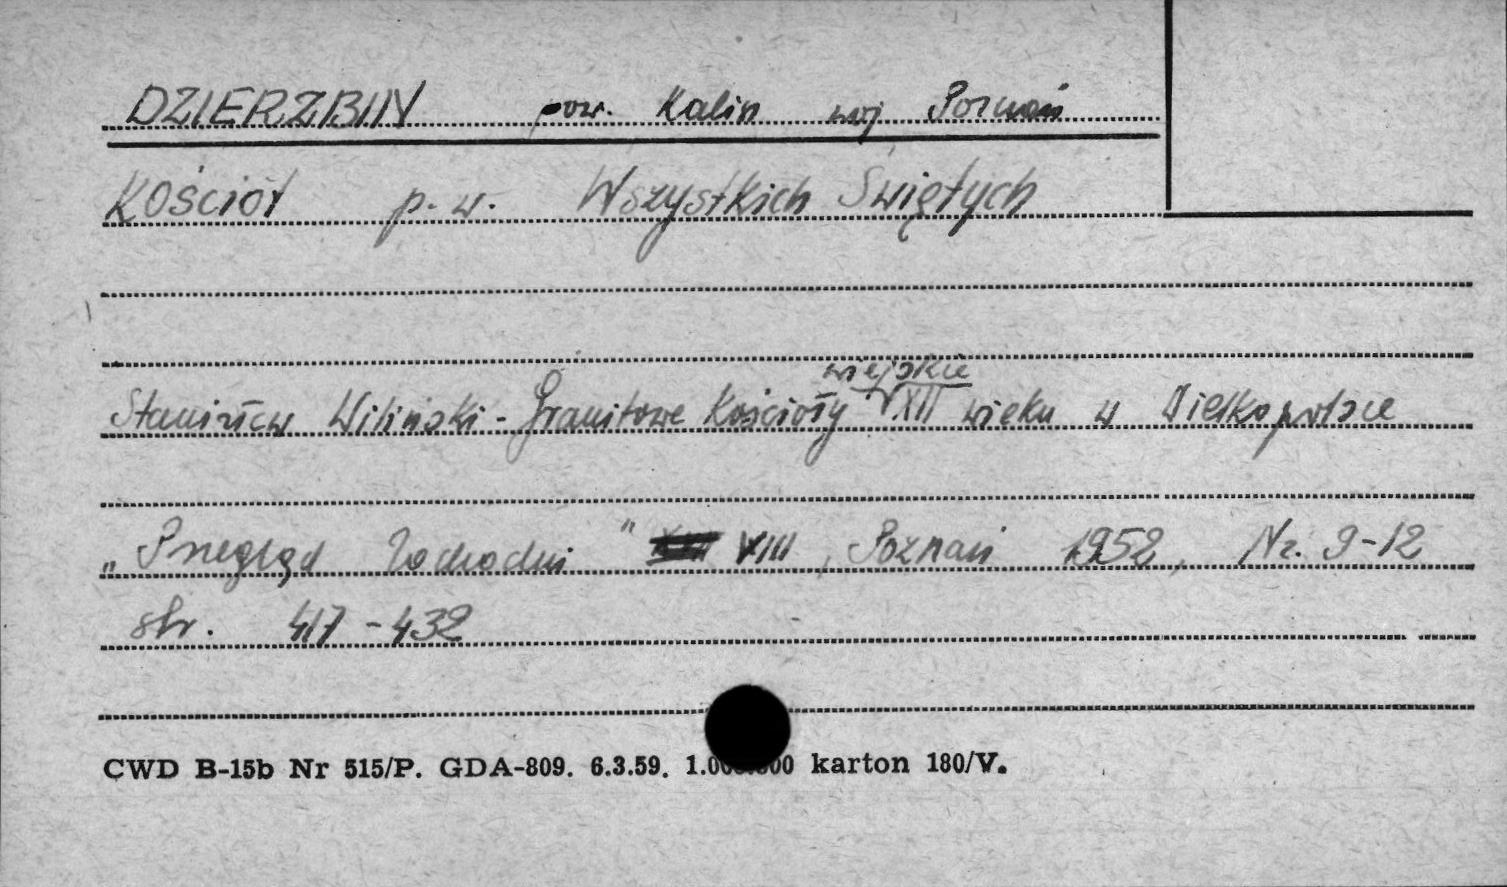 DZIERZBIN pow. Kalin woj Poznań
Kościół p.w. Wszystkich Świętych
wiejskie
Stanisław Wiliński - Granitowe Kościoły XII wieku w Wielkopolsce
„Przegląd Zachodni" VIII, Poznań 1952, Nr. 9-12
str. 417-432
CWD B-15b Nr 515/P. GDA-809. 6.3.59. 1.000.000 karton 180/V.